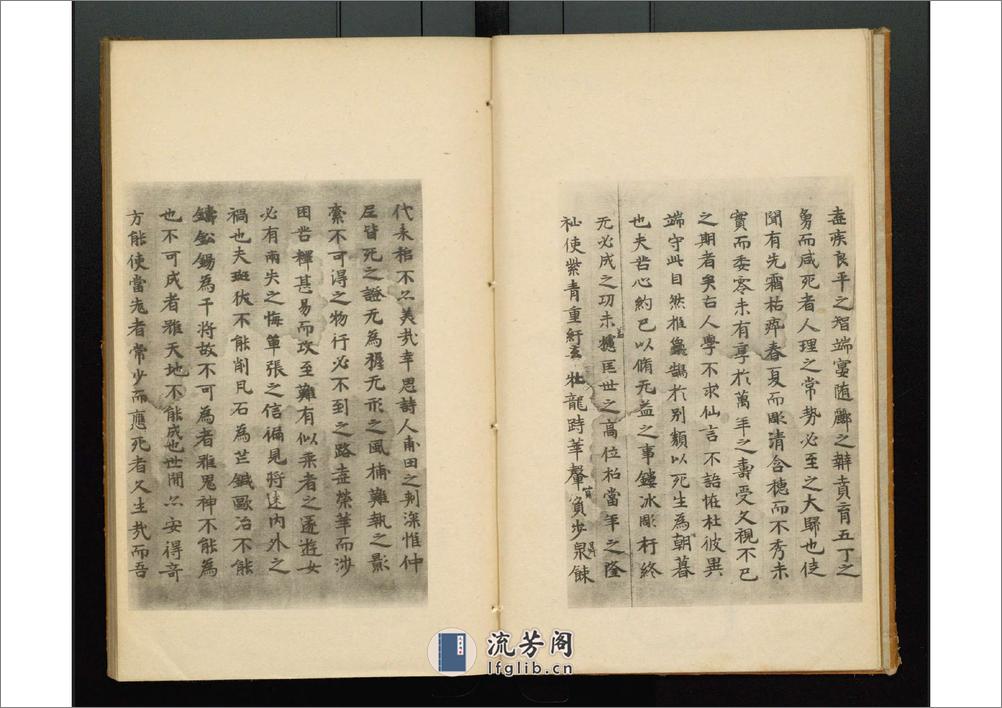 壺疾良平之智端嬰随酈之辯賁育五丁之
勇而咸死者人理之常勢必至之大歸也徒
聞有先霜枯弈春夏而彫清含穗而不秀未
實而委零未有享扵萬年之壽受久視不已
之期者矣古人學不求仙言不語恠杜彼異
端守此自然推龜鶴扵别類以死生為朝暮
也夫苦心約己以脩无益之事鏤冰彫朽終
无必成之功未摅匡世之高位柏當年之隆
祉使紫青重紆玄牡龍跱華轂負步泉餗
代耒枱不亦美㢤幸思詩人甫田之刾深惟仲
𡰱皆死之證无為握无形之風捕難執之影
索不可得之物行必不到之路壺榮華而涉
困苦釋甚易而攻至難有似桒者之逐遊女
必有兩失之悔單張之信徧見将迷内外之
禍也夫班狄不能削凡石為芒鍼歐冶不能
鑄鈆錫為干将故不可為者雖鬼神不能為
也不可成者雖天地不能成也世閒亦安得奇
方能使當老者常少而應死者久生㢤而吾
流芳阁
lfglib.cn